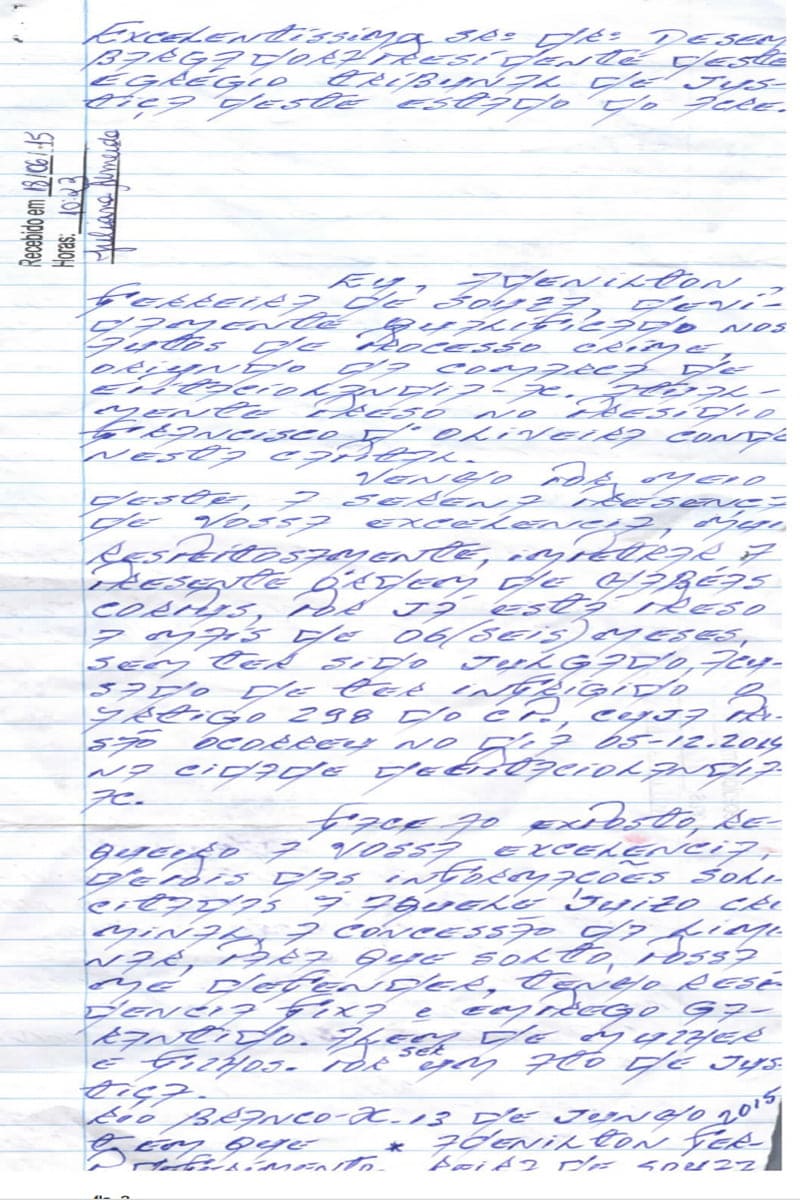 Recebido em 18/06/15
Horas: 10:43
Juliana Almeida
EXCELENTISSIMO SR: DR: DESEM
BARGADOR PRESIDENTE DESTE
EGRÉGIO TRIBUNAL DE JUS-
TIÇA DESTE ESTADO DO ACRE.
EU, ADENILTON
FERREIRA DE SOUZA, DEVI-
DAMENTE QUALIFICADO NOS
AUTOS DE PROCESSO CRIME,
ORIUNDO DA COMARCA DE
EPITACIOLANDIA-AC. ATUAL-
MENTE PRESO NO PRESIDIO
FRANCISCO D' OLIVEIRA CONDE
NESTA CAPITAL.
VENHO POR MEIO
DESTE, A SERENA PRESENÇA
DE VOSSA EXCELENCIA, MUI
RESPEITOSAMENTE, IMPETRAR A
PRESENTE ÓRDEM DE HABÉAS
CORPUS, POR JÁ ESTÁ PRESO
A MAIS DE 06(SEIS) MESES,
SEM TER SIDO JULGADO, ACU-
SADO DE TER INFRIGIDO O
ARTIGO 298 DO CP., CUJA PRI-
SÃO OCORREU NO DIA 05-12.2014
NA CIDADE DE EPITACIOLANDIA-
AC.
FACE AO EXPOSTO, RE-
QUEIRO A VOSSA EXCELÊNCIA,
DEPOIS DAS INFORMAÇÕES SOLI
CITADAS À AQUELE JUIZO CRI
MINAL, A CONCESSÃO DA LIMI
NAR, PARA QUE SOLTO, POSSA
ME DEFENDER, TENHO RESE
DENCIA FIXA E EMPREGO GA-
RANTIDO. ALÉM DE MULHER
E FILHOS. POR SER UM ATO DE JUS-
TIÇA.
RIO BRANCO-AC. 13 DE JUNHO 2015
TEM QUE * ADENILTON FER-
DEFERIMENTO. REIRA DE SOUZA